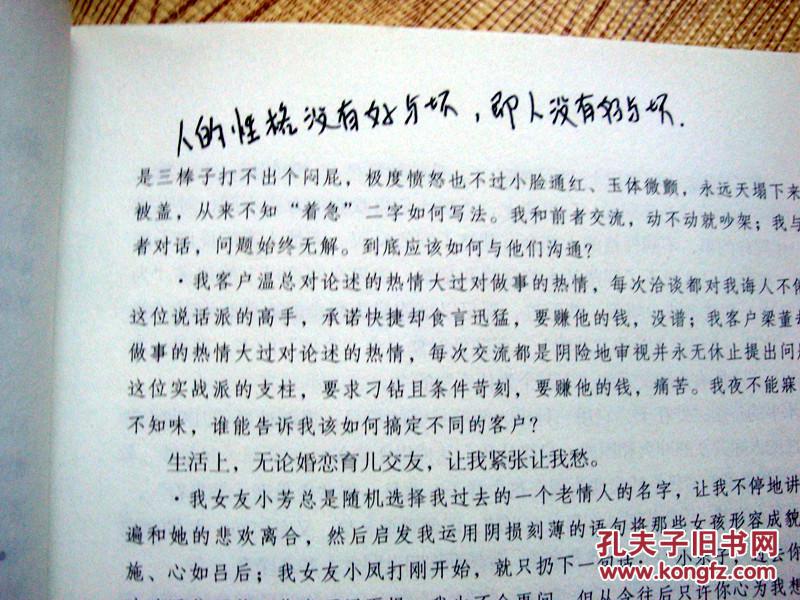 人的性格没有好与坏，即人没有好与坏.
是三棒子打不出个闷屁，极度愤怒也不过小脸通红、玉体微颤，永远天塌下来
被盖，从来不知“着急”二字如何写法。我和前者交流，动不动就吵架；我与
者对话，问题始终无解。到底应该如何与他们沟通？
·我客户温总对论述的热情大过对做事的热情，每次洽谈都对我诲人不倦
这位说话派的高手，承诺快捷却食言迅猛，要赚他的钱，没谱；我客户梁董却
做事的热情大过对论述的热情，每次交流都是阴险地审视并永无休止提出问题
这位实战派的支柱，要求刁钻且条件苛刻，要赚他的钱，痛苦。我夜不能寐
不知味，谁能告诉我该如何搞定不同的客户？
生活上，无论婚恋育儿交友，让我紧张让我愁。
·我女友小芳总是随机选择我过去的一个老情人的名字，让我不停地讲
遍和她的悲欢离合，然后启发我运用阴损刻薄的语句将那些女孩形容成貌
施、心如吕后；我女友小凤打刚开始，就只扔下一句话：“小乐子，过去你
但从今往后只许你心为我想
孔夫子旧书网
www.kongfz.com